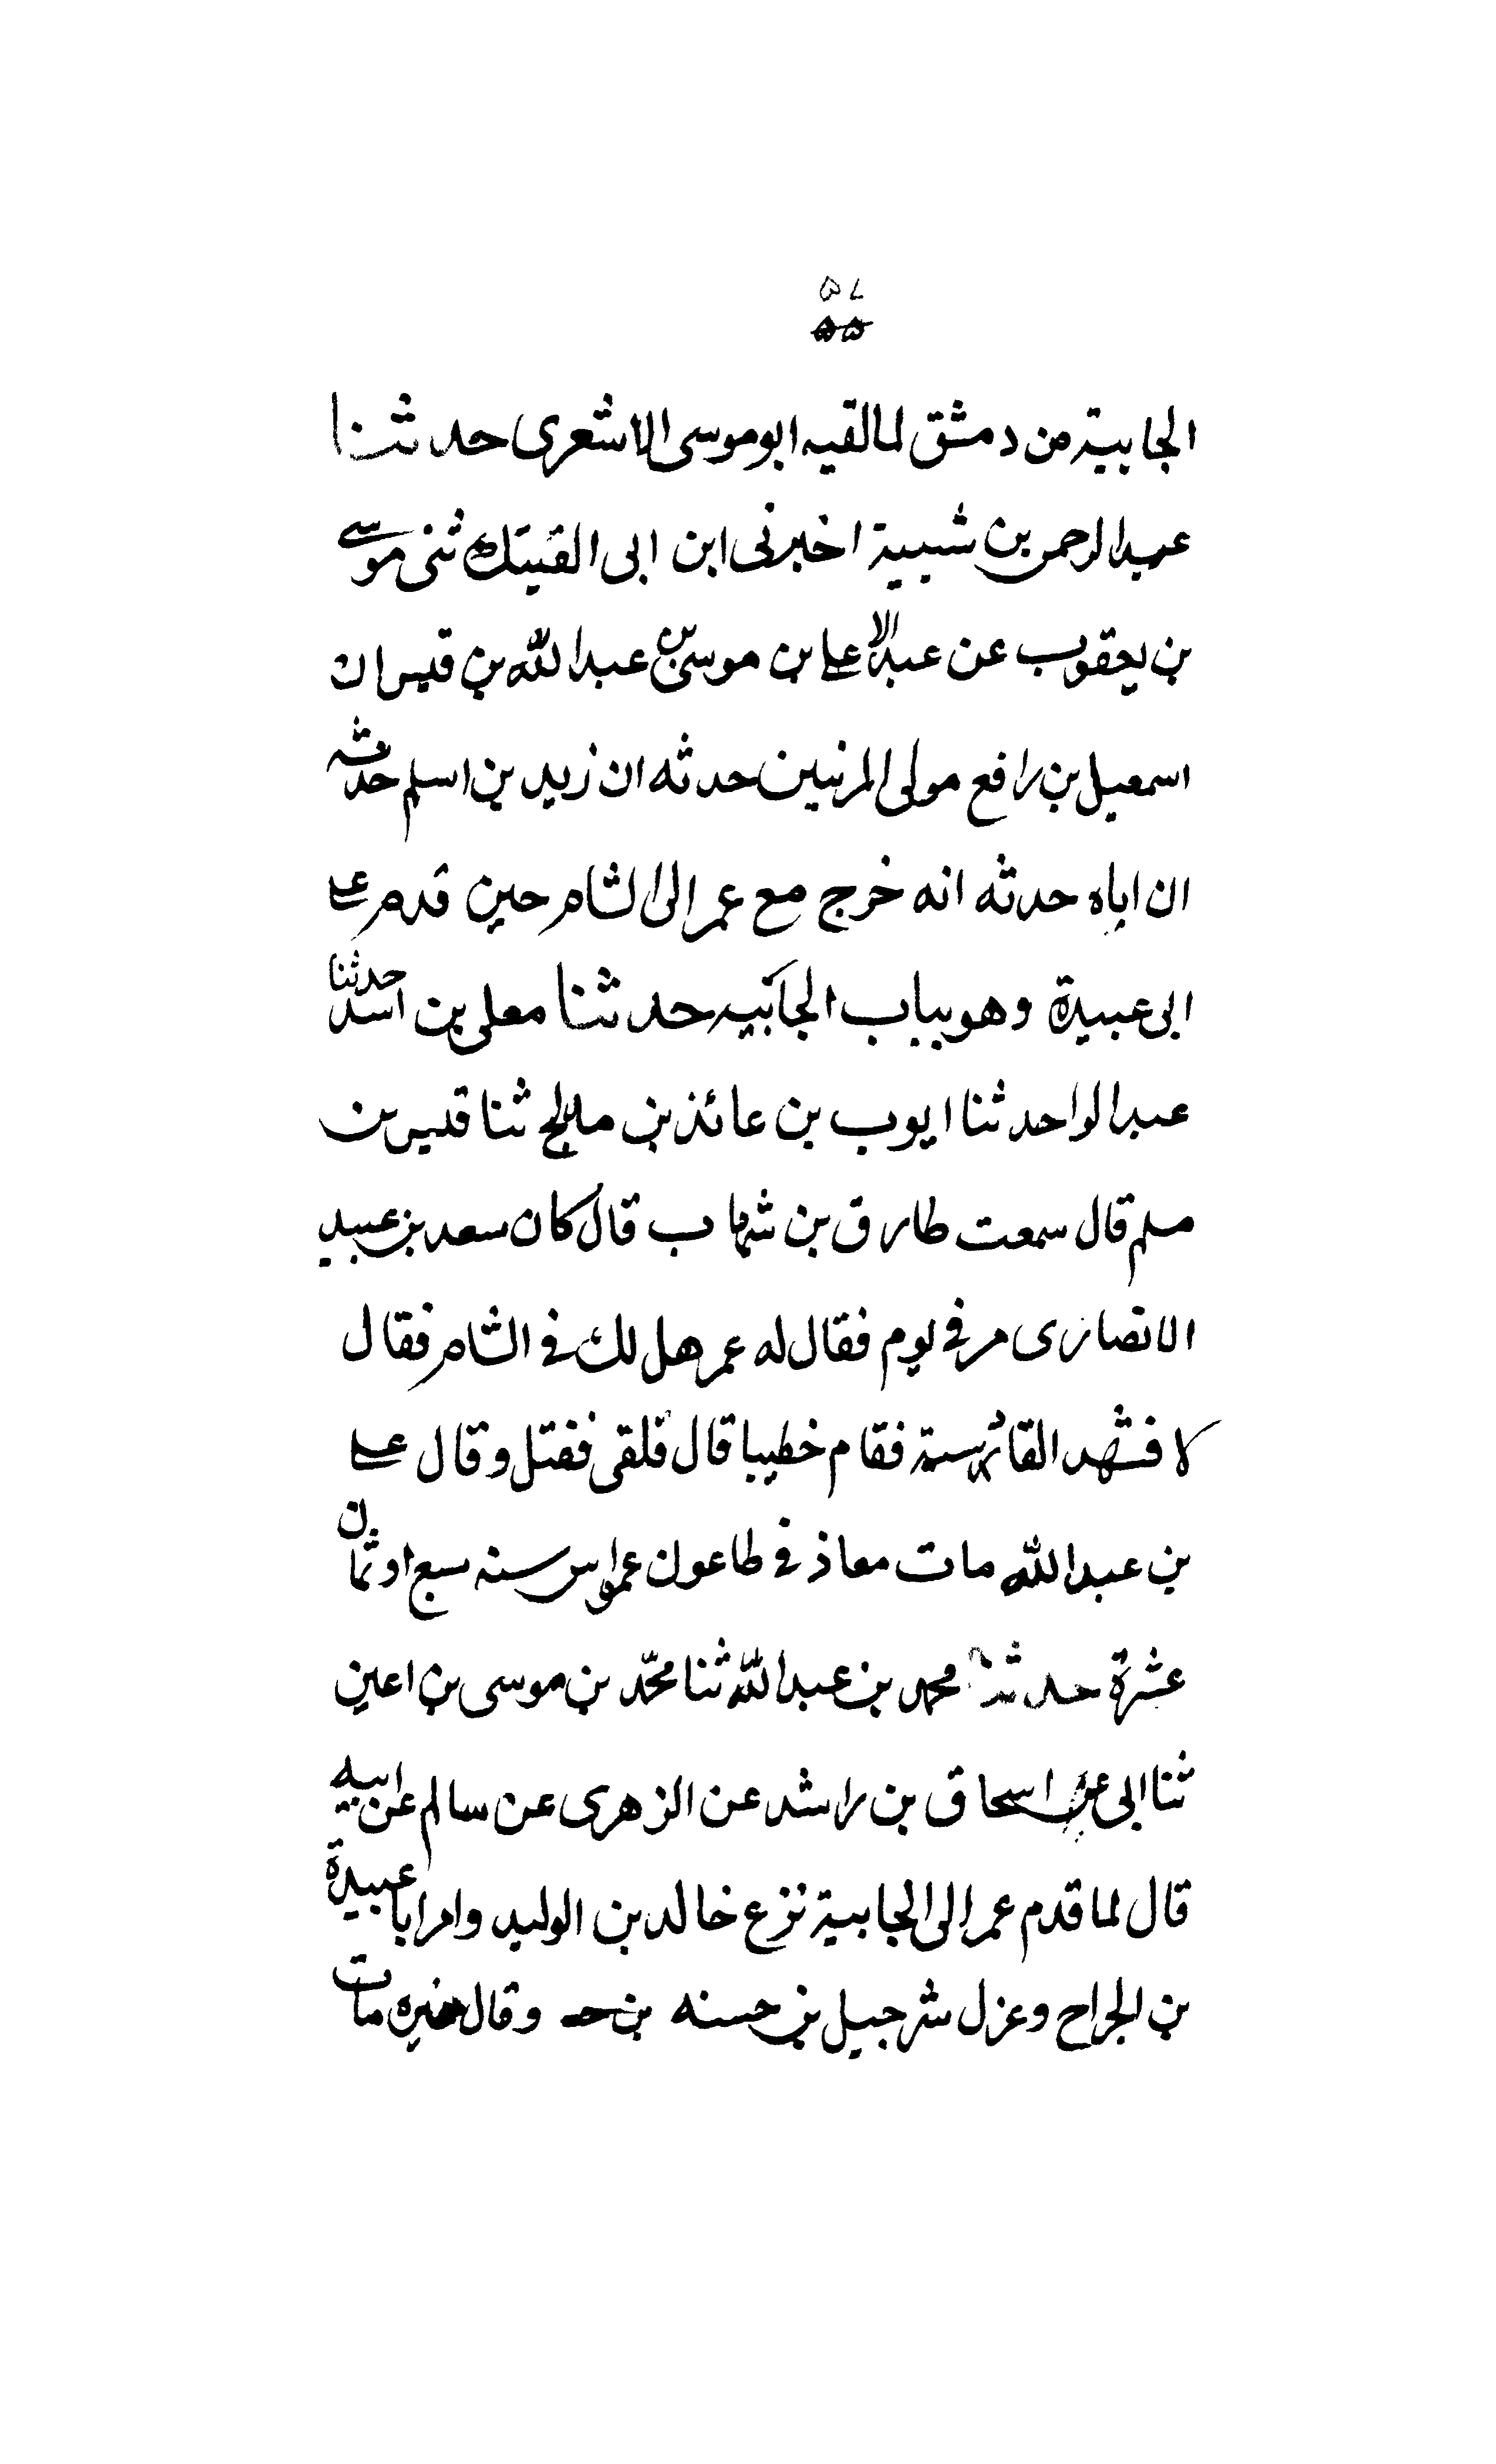 ۵۷
۵۵
الجابية من دمشق لما لقيه ابو موسى الاشعرى حدثنا
عبد الرحمن بن شيبة اخبرنى ابن ابى الفديك ثنى موسى
بن يعقوب عن عبد الاعلى بن موسى بن عبد الله بن قيس ان
اسمعيل بن رافع مولى المزنيين حدثه ان زيد بن اسلم حدثه
ان اباه حدثه انه خرج مع عمر الى الشام حين قدم على
ابى عبيدة وهو بباب الجابيه حدثنا معلى بن اسد حدثنا
عبد الواحد ثنا ايوب بن عائذ بن مدلج ثنا قيس بن
مسلم قال سمعت طارق بن شهاب قال كان سعد بن عبيد
الانصارى مر فى يوم فقال له عمر هل لك فى الشام فقال
لا فشهد القادسية فقام خطيبا قال فلقى فقتل وقال على
بن عبد الله مات معاذ فى طاعون عمواس سنه سبع او ثمان
عشرة حدثنا محمد بن عبد الله ثنا محمد بن موسى بن اعين
ثنا ابى عن اسحاق بن راشد عن الزهرى عن سالم عن ابيه
قال لما قدم عمر الى الجابية نزع خالد بن الوليد وامر ابا عبيدة
بن الجراح وعزل شرجيل بن حسنه وقال غيره مات